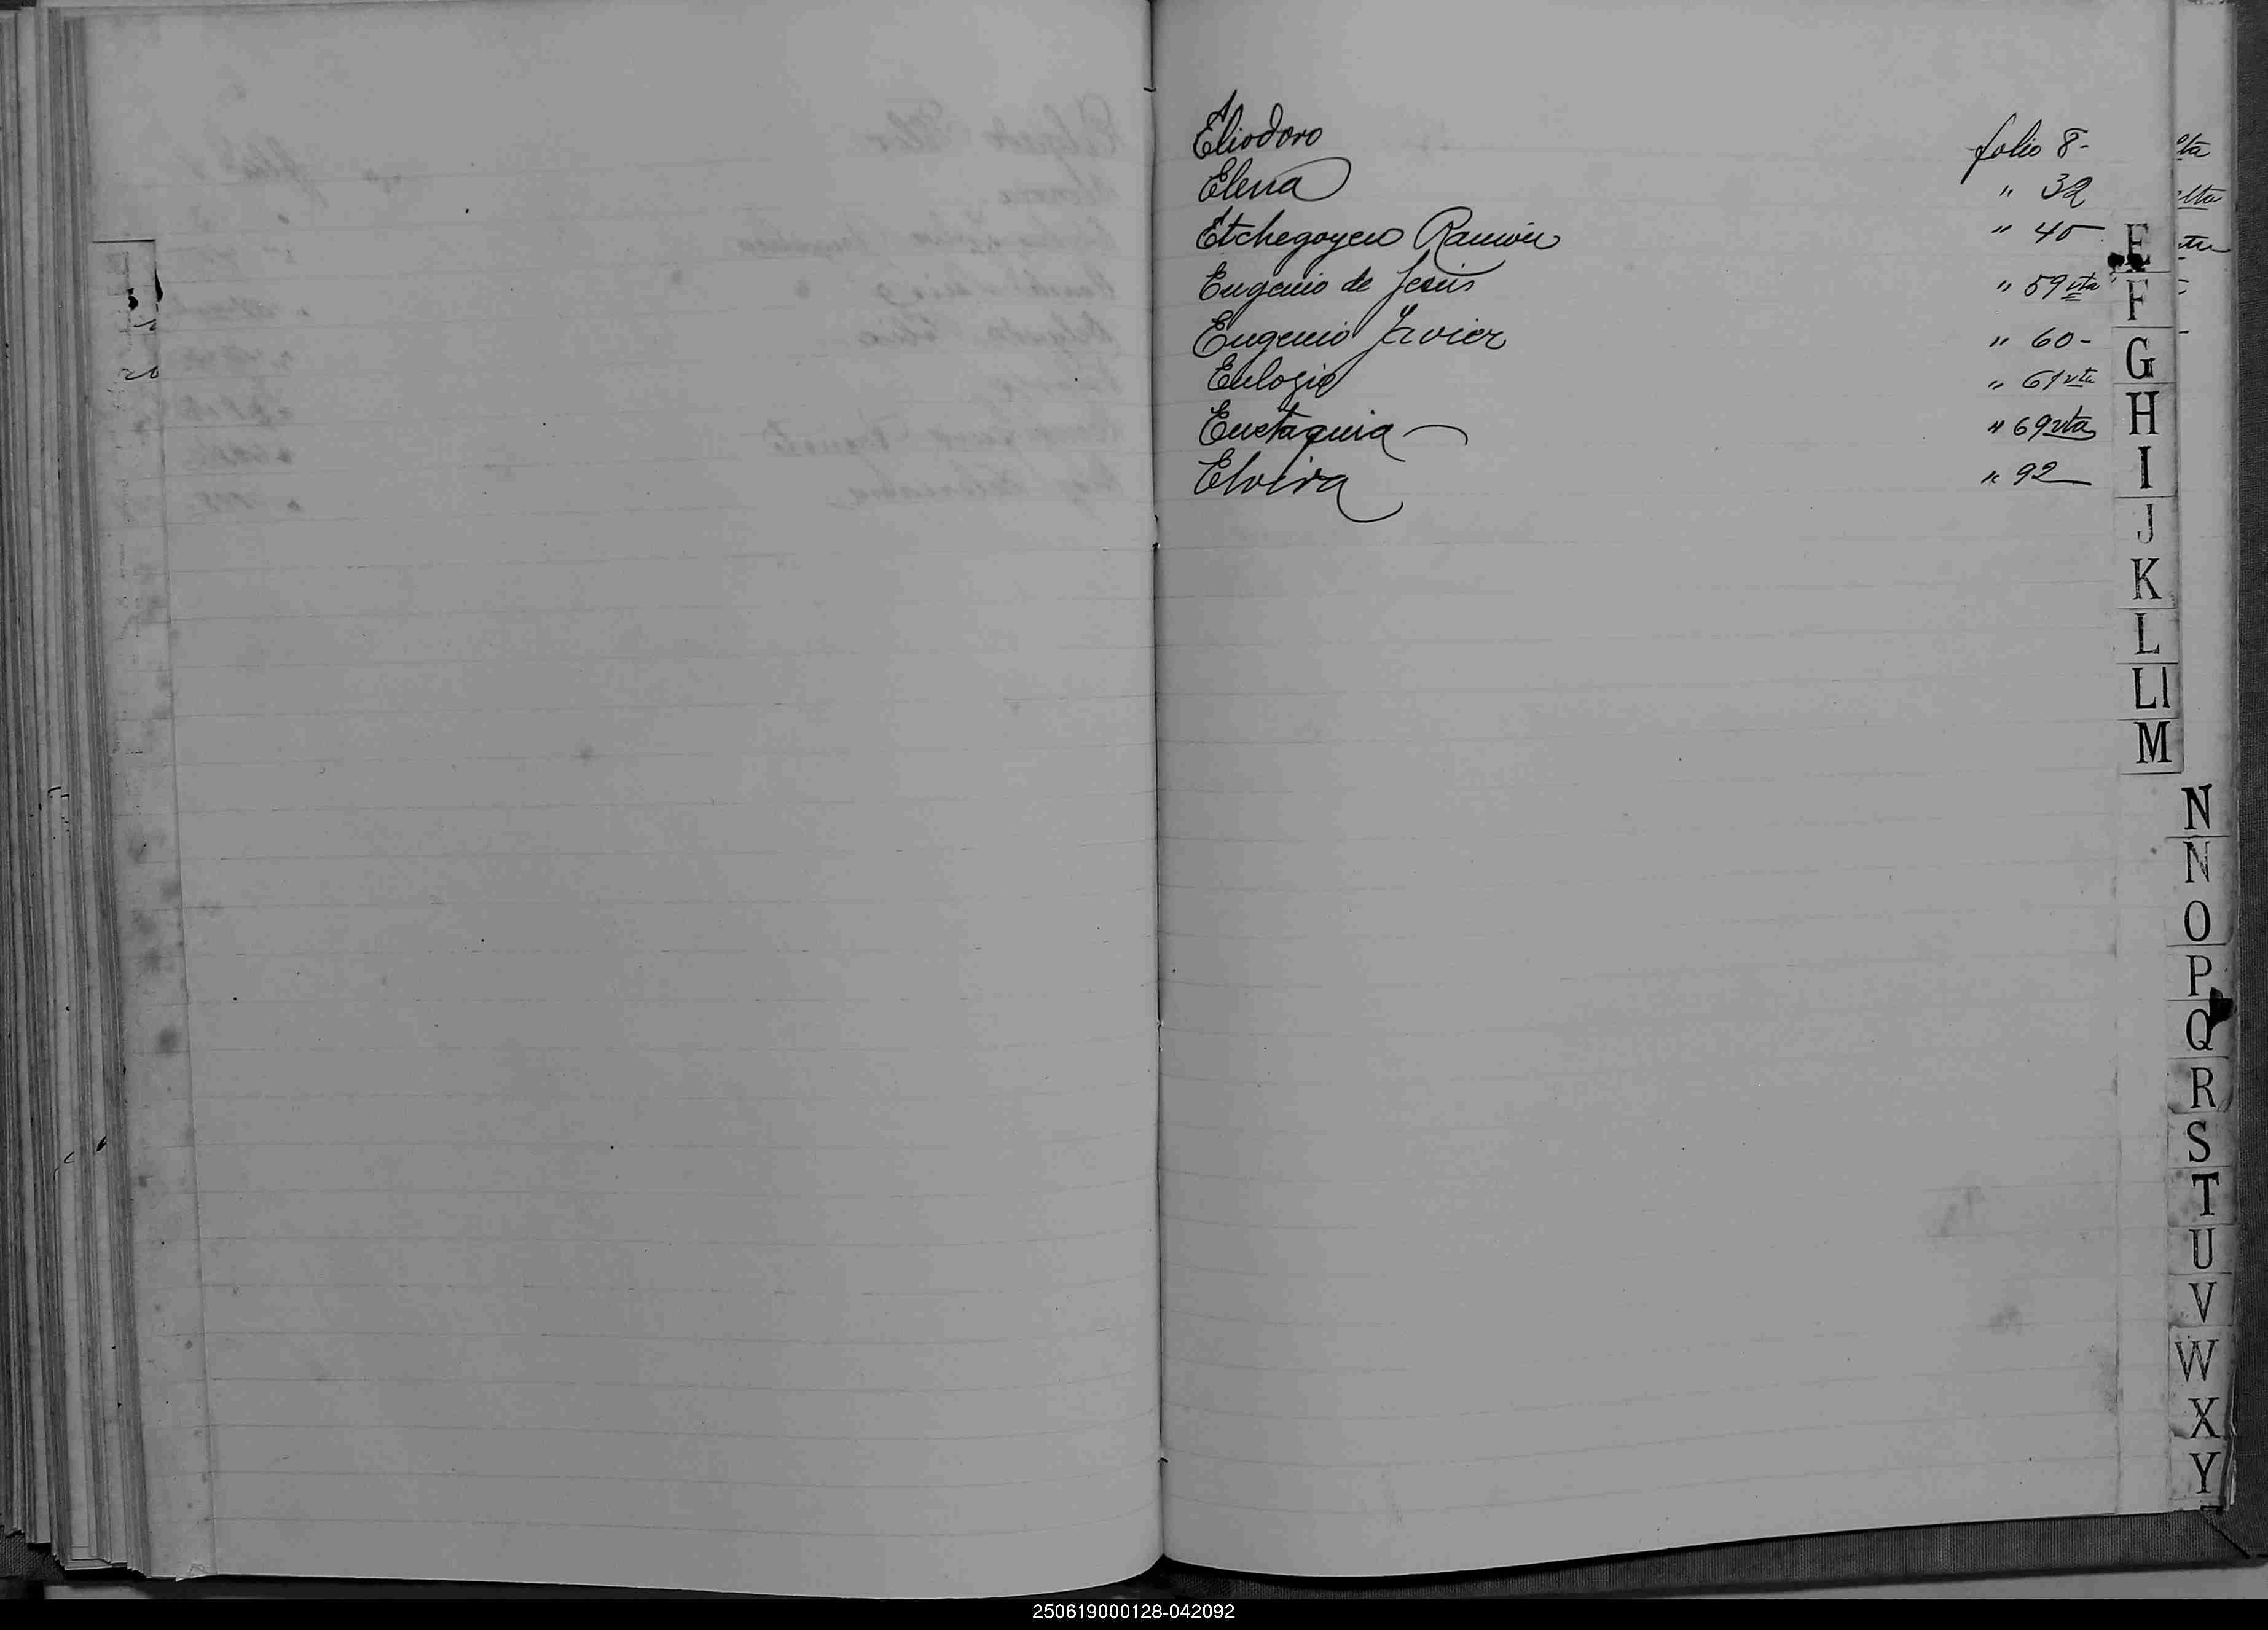 Eliodoro folio 8-
Elena " 32
Etchegoyen Ramón " 40
Eugenio de Jesús " 59 vta
Eugenio Javier " 60-
Eulogio " 61 vta
Eustaquia " 69 vta
Elvira " 92
E
F
G
H
I
J
K
L
Ll
M
N
N
O
P
Q
R
S
T
U
V
W
X
Y
250619000128-042092